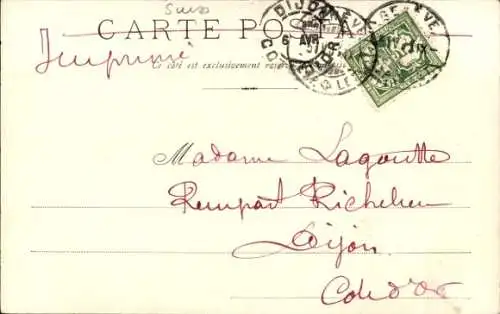 Suiss
CARTE POSTALE
Imprimé
Ce côté est exclusivement
DIJON
6 AVR
GENÈVE
Madame Lagoutte
Rempart Richelieu
Dijon
Côte d'Or